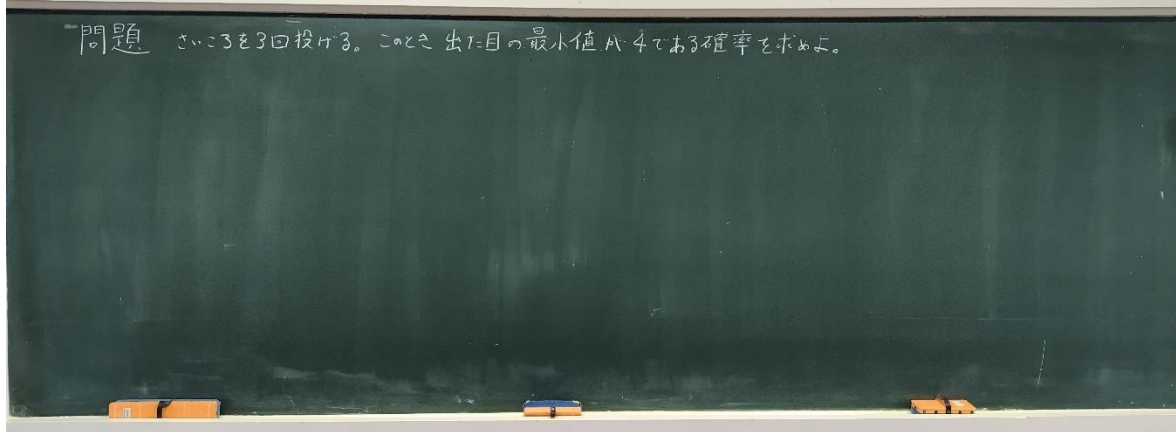 問題 さいころを3回投げる。このとき 出た目の最小値が4である確率を求めよ。